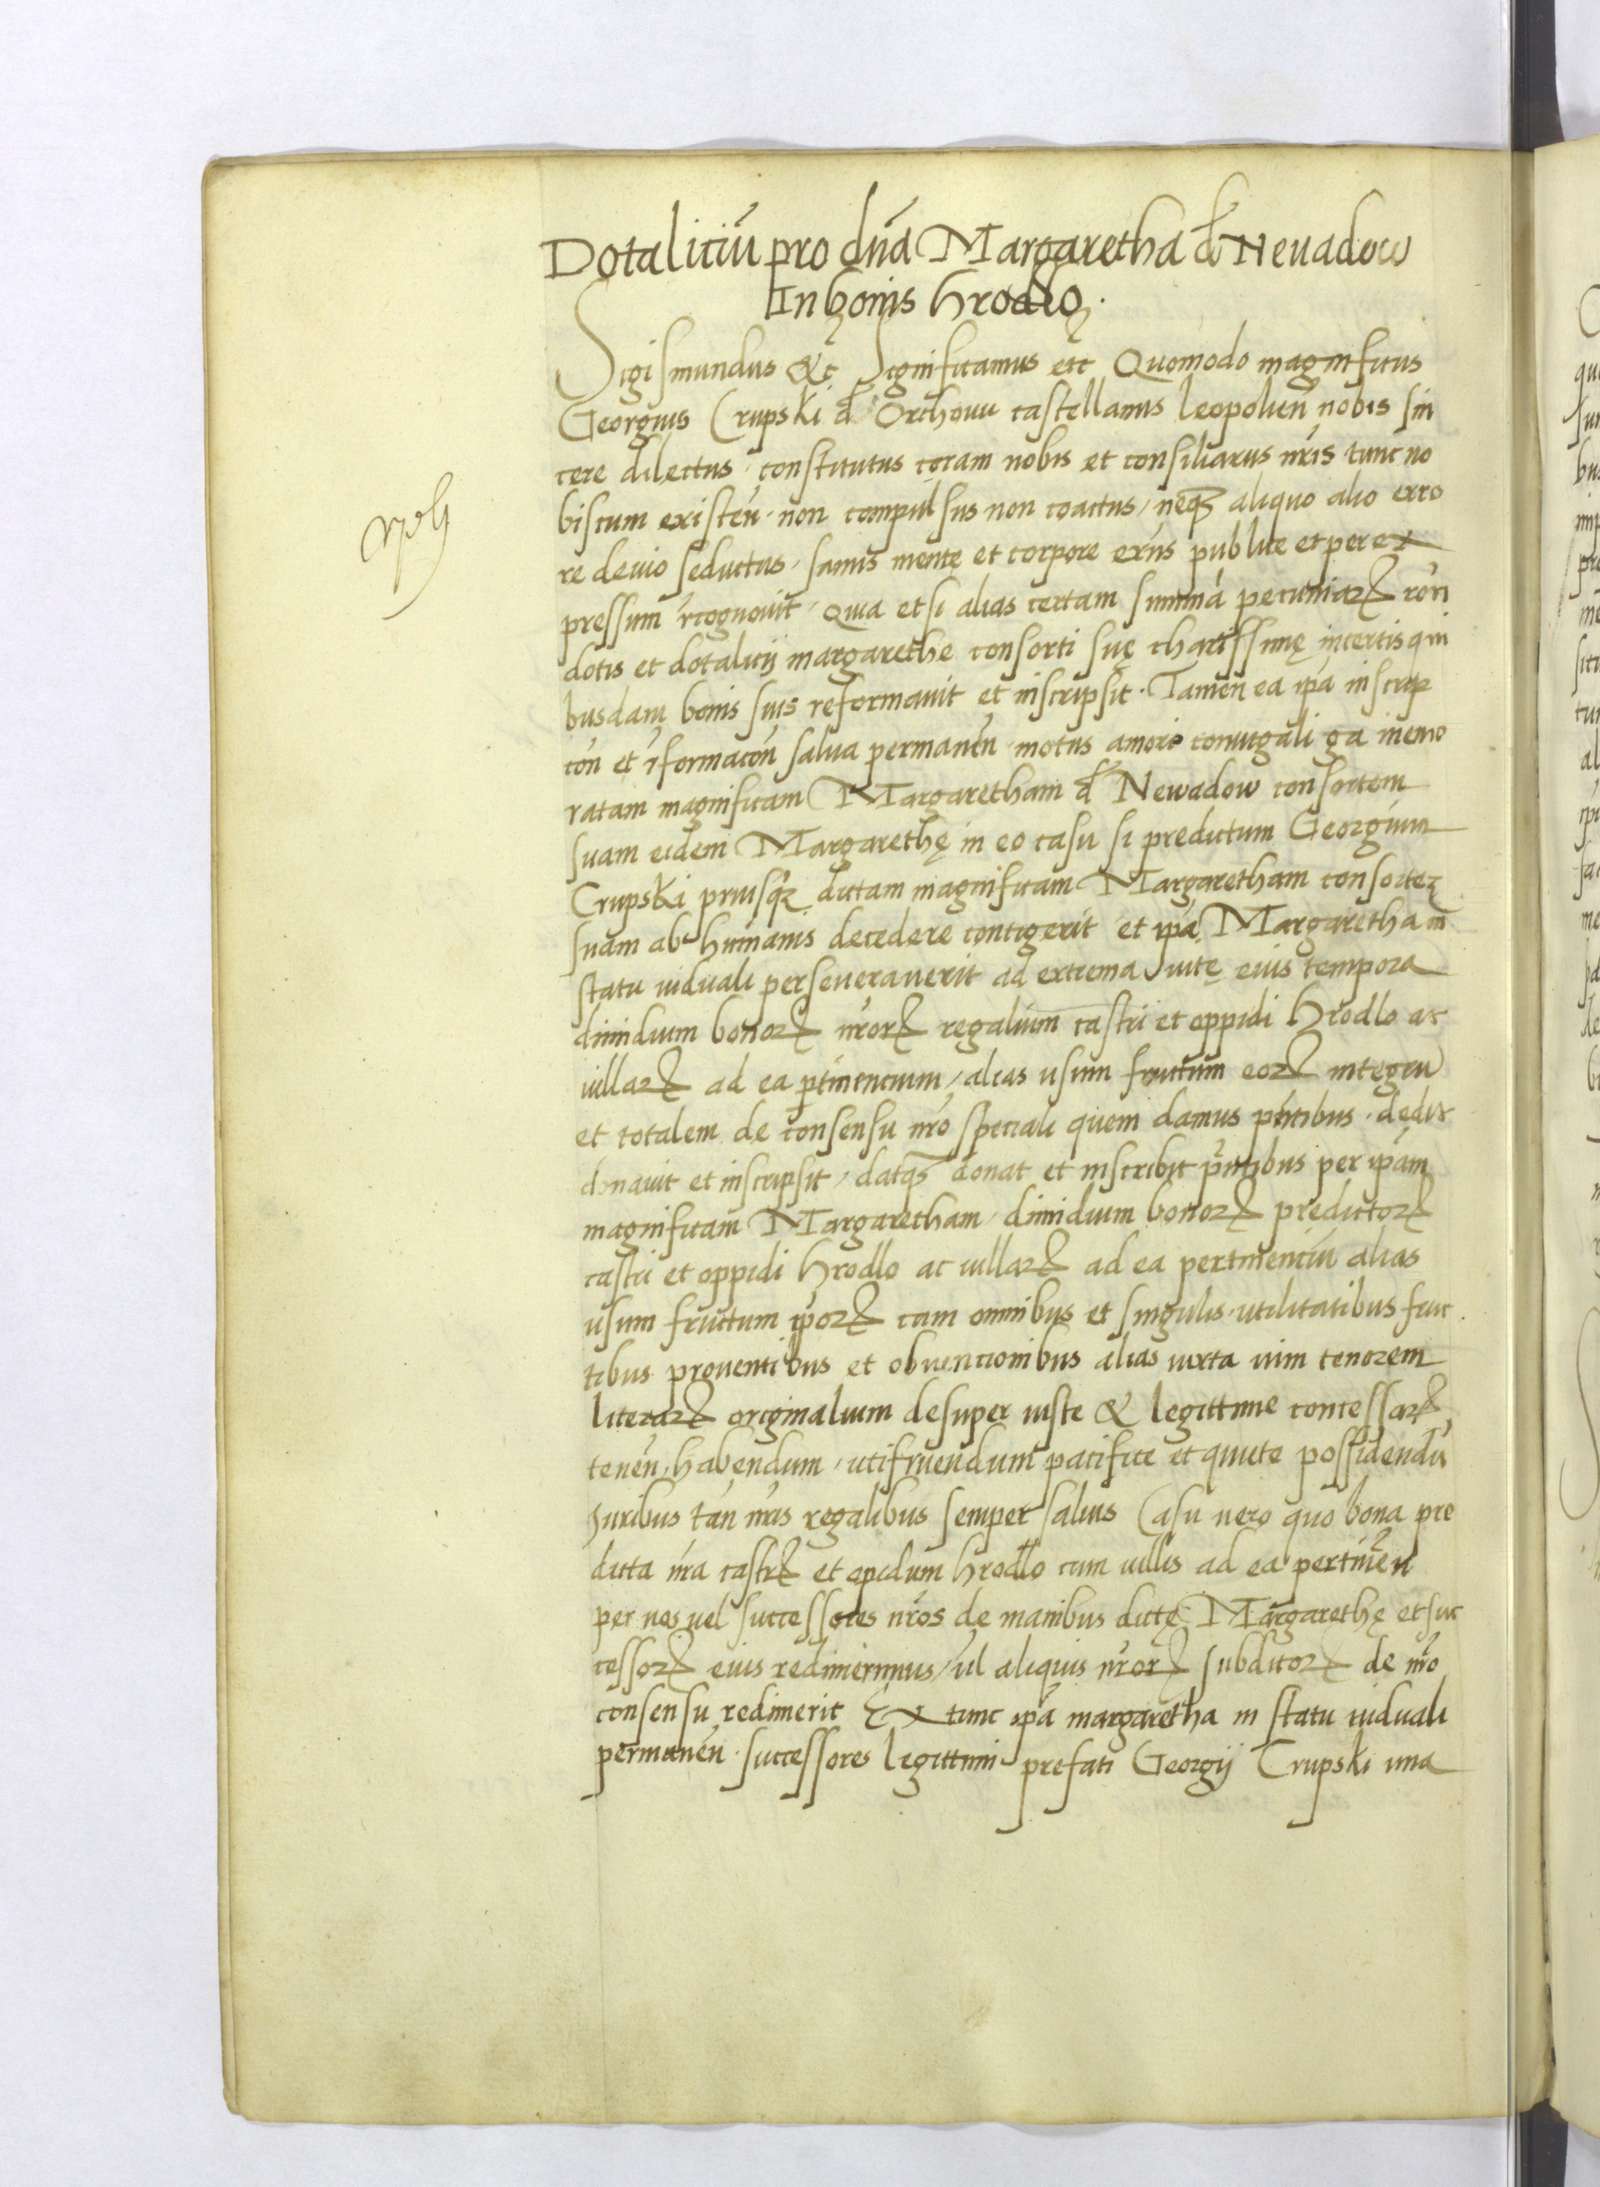 Dotaliciū pro dn̄a Margaretha de Neuadow
In bonis hrodlo.
Sigismundus &c Significamus etc Quomodo magnificus
Georgius Crupski d Orchouu castellanus leopolien̄ nobis sin
cere dilectus, constitutus coram nobis et consiliarijs nr̄is tunc no
biscum existen̄. non compulsus non coactus, neq aliquo alio erro
re deuio seductus, sanus mente et corpore exn̄s publice et per ex
pressum rcognouit, quia etsi alias certam summā pecuniarꝝ rōn
dotis et dotalicij margarethe consorti suę charissimę in certis qui
busdam bonis suis reformauit et inscripsit. Tamen ea ip̄a inscrip
cōn et rformacōn salua permanēn. motus amore coniugali ga memo
ratam magnificam Margaretham d Newadow consortem
suam eidem Margarethę in eo casu si predictum Georgium
Crupski priusq dictam magnificam Margaretham consortez
suam ab humanis decedere contigerit et ip̄a Margaretha in
statu uiduali perseverauerit ad extrema uitę eius tempora
dimidium bonorꝝ nr̄orꝝ regalium castri et oppidi hrodlo ac
uillarꝝ ad ea ptinencium, alias usum fructum eorꝝ integru
et totalem de consensu nr̄o speciali quem damus pn̄tibus. dedit
donauit et inscripsit, datqs donat et inscribit pn̄tibus per ip̄am
magnificam Margaretham, dimidium bonorꝝ predictorꝝ
castri et oppidi hrodlo ac uillarꝝ ad ea pertinenciū alias
usum fructum ip̄orꝝ cum omnibus et singulis utilitatibus fruc
tibus prouentibus et obuencionibus alias iuxta uim tenorem
literarꝝ originalium desuper iuste & legittime concessarꝝ
tenēn. habendum, utifruendum pacifice et quiete possidendū
Juribus tān nr̄is regalibus semper saluis Casu uero quo bona pre
dicta nr̄a castrꝝ et opidum hrodlo cum uillis ad ea pertinēn
per nos uel successores nr̄os de manibus dictę Margarethę et suc
cessorꝝ eius redimerimus, ul aliquis nr̄orꝝ subditorꝝ de nr̄o
consensu redimerit Ex tunc ip̄a margaretha in statu uiduali
permanēn. successores legittimi prefati Georgij Crupski una